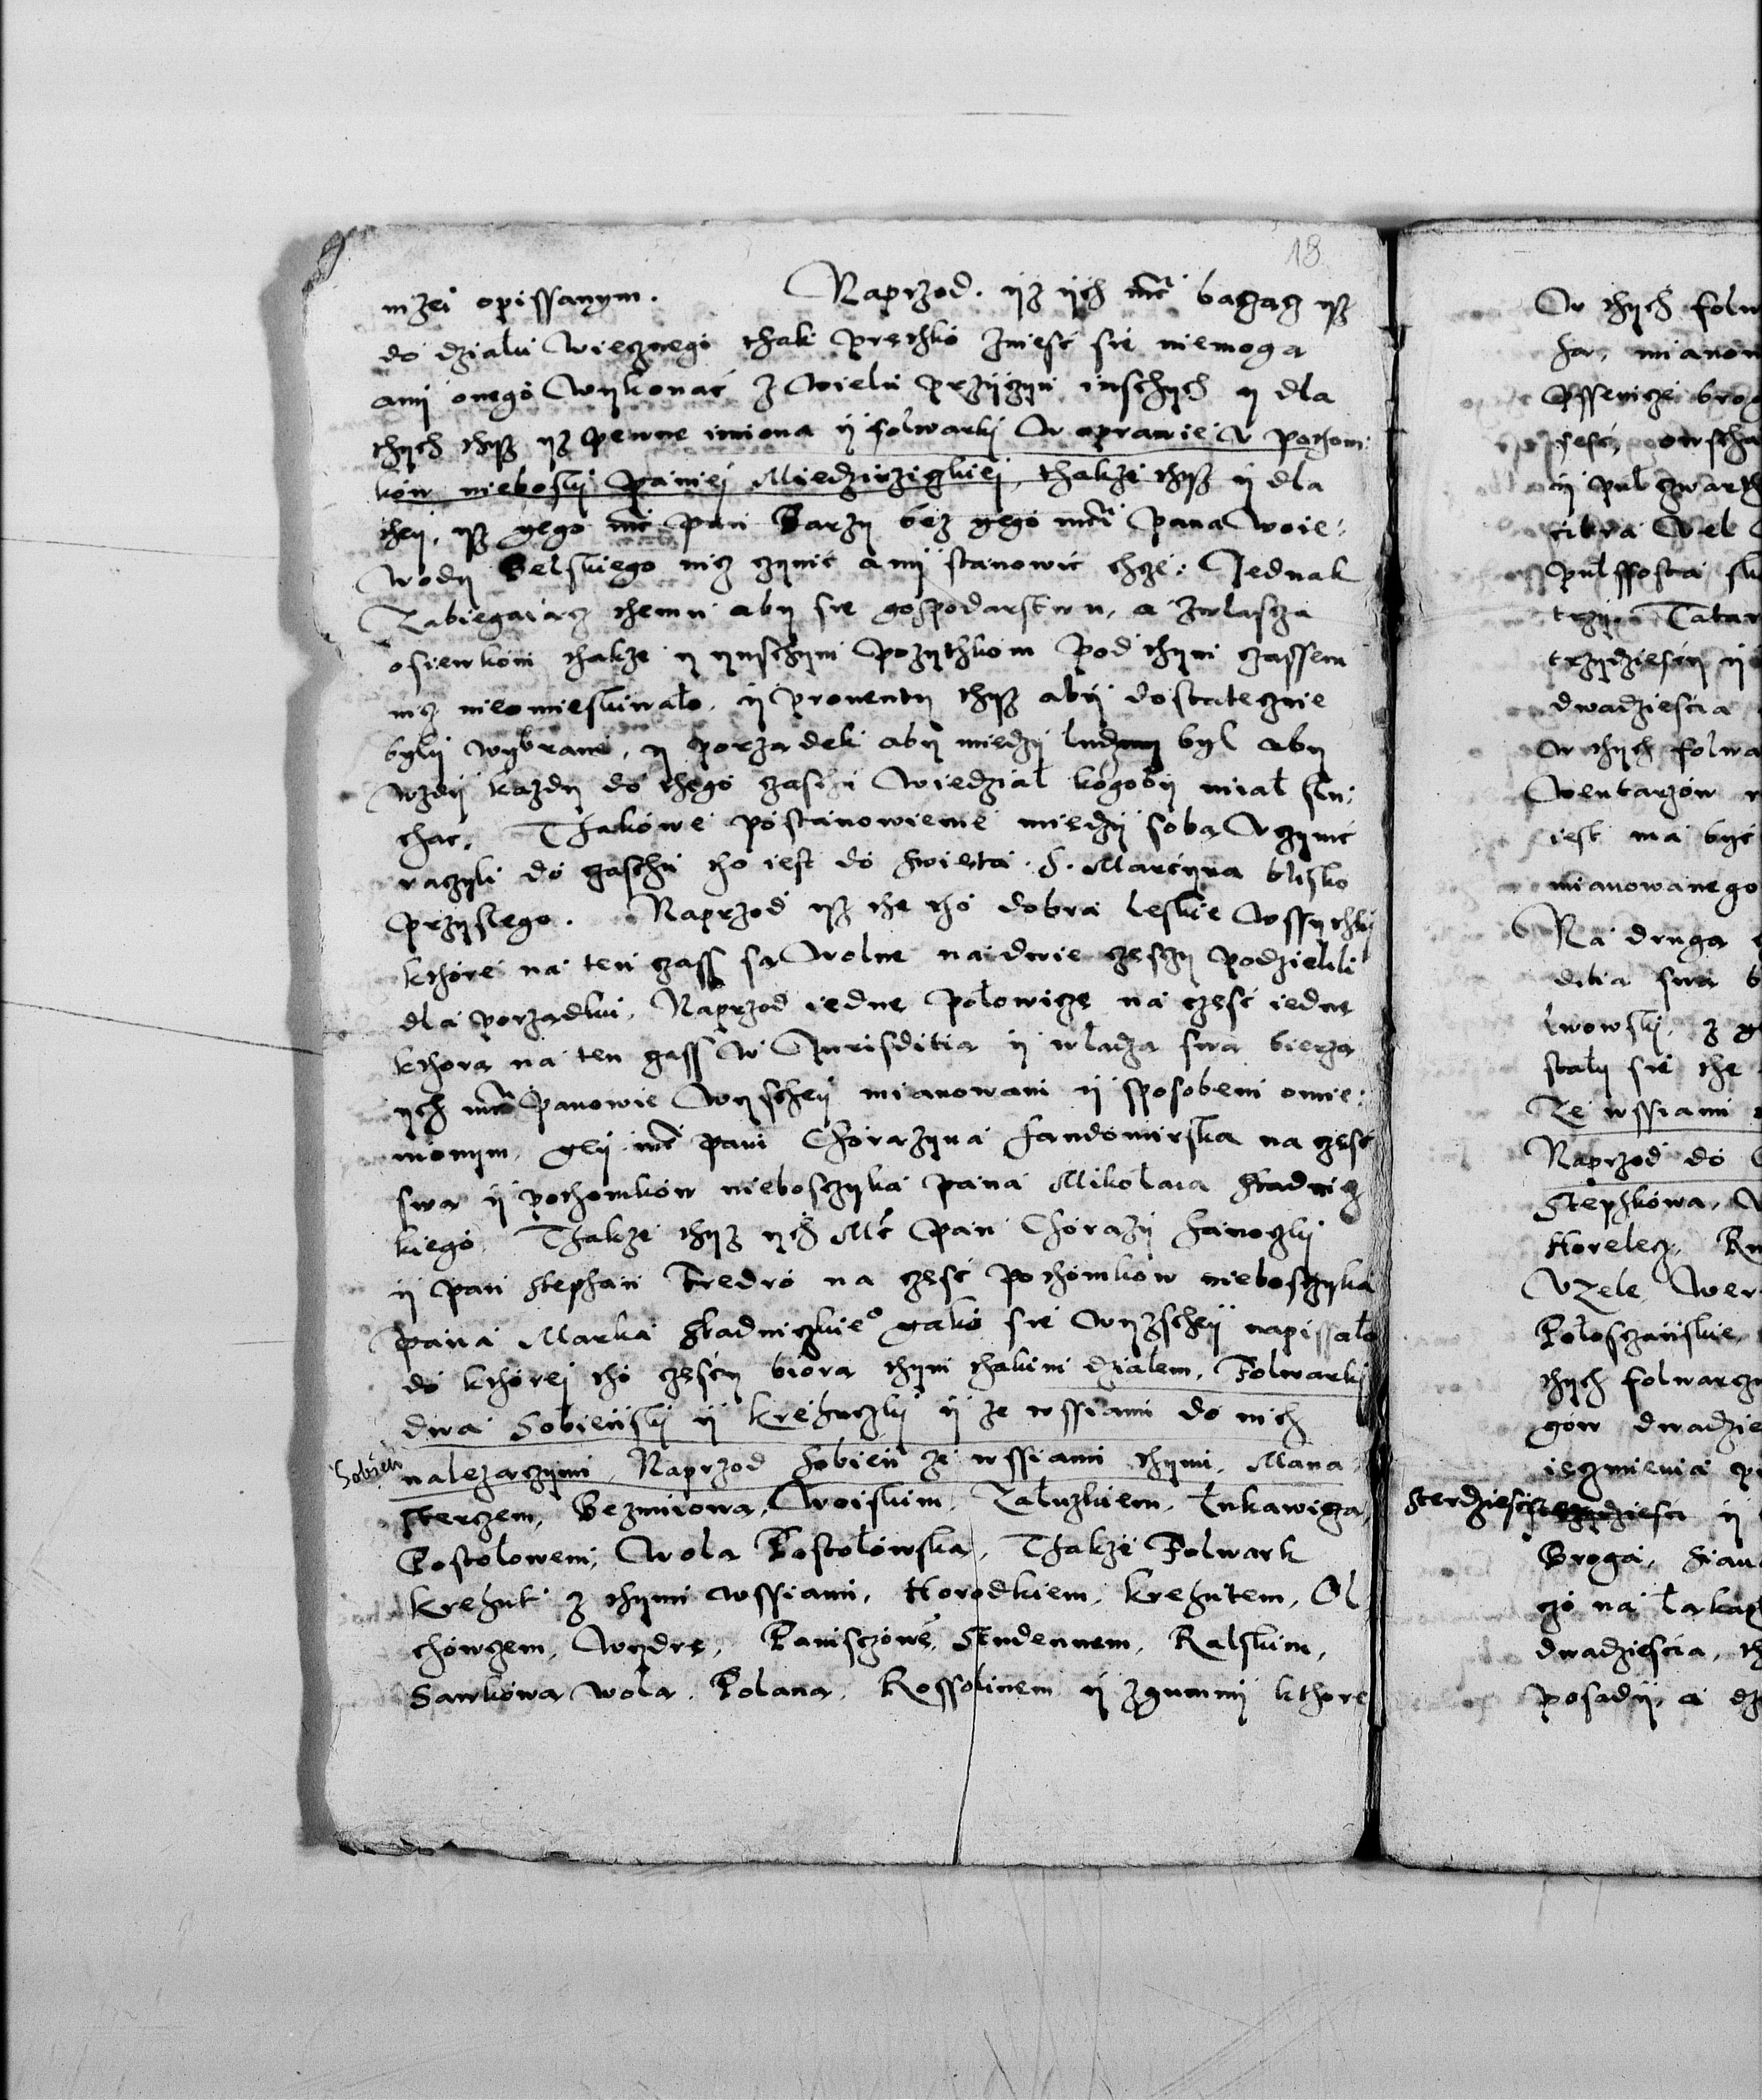 18
nizei opissanym. Naprzod. yz ych mcz baczacz yz
do dzialu wiecznego thak prethko zniesc sie niemoga
any onego wykonac z wielu przyczyn inschych y dla
thych thysz yz pewne imiona y folwarky w oprawie v pothom:
kow nieboski paniej Miedzirzigkiej, thakze thysz y dla
they, ysz yego mcz pan Barzy bez yego mczi pana woie:
wody Belskiego nicz czynic any stanowic chcze: Jednak
Zabiegaiacz themu aby sie gospodarstwu, a zwlascza
osiewkom thakze y ynschym pozythkom pod thym czassem
nicz nieomieskiwało, y prouenty thysz aby dostatecznie
byly wybrane, y porzadek aby miedzy ludzmy byl aby
wzdy kazdy do thego czaschu wiedział kogoby miał slu:
chac. Thakowe postanowienie miedzy soba vczynic
raczyli do czaschu tho iest do swieta S. Marcyna blisko
przyslego. Naprzod ysz the tho dobra leskie wssythky
kthore na ten czass sa wolne na dwie czesczy podzielili
dla porzadku, Naprzod iedne połowicze na czesc iedne
kthora na ten czass w Jurisditia y władza swa bierza
ych mcz panowie wyschey mianowani y sposobem omie:
nionym, yey mcz pani Chorazyna sandomirska na czesc
swa y pothomkow nieboszczyka pana Mikolaia Stadnicz
kiego. Thakze thysz ych Mcz pan Chorazy sanoczky
y pan Stephan Fredro na czesc pothomkow nieboszczyka
pana Marka Stadniczkie° yako sie wyzschey napissało
do kthorej tho czescy biora thym thakim działem, Folwarky
dwa Sobienski y krehuczky y ze wssiami do nich
Sobien
nalezaczymi, Naprzod Sobien ze wssiami thymi, Mana
sterzem, Bezmirowa, Woiskim, Załuzkiem, Łukawicza,
Postolowem, Wola Postolowska, Thakze Folwark
krehut z thymi wssiami, Horodkiem, krehutem, Ol
chowczem, Wydre, Paniszczowe, Studennem, Ralskim,
Sawkowa wola, Polana, Rossolinem y zgummj kthore
W thych folw
sa, mianow
Pssenicze brog
sesc, owscha
y puł czwarth
cibra Wel
pulssosta sk
trzy. Tatar
trzydziescy y
dwadziescia
w thych folwa
Wentarzow
iest ma byc
mianowanego
Na druga
ditia swa b
lwowski, z y
staly sie the
Ze wssiami
Naprzod do
Stephkowa,
Horelecz, Ru
Vzele, Wer
Połosczanskie,
thych folwarcz
gow dwadzie
ieczmienia p
sterdziesci y
Broga, siana
czo na lakach
dwadziescia, th
posady, a dz